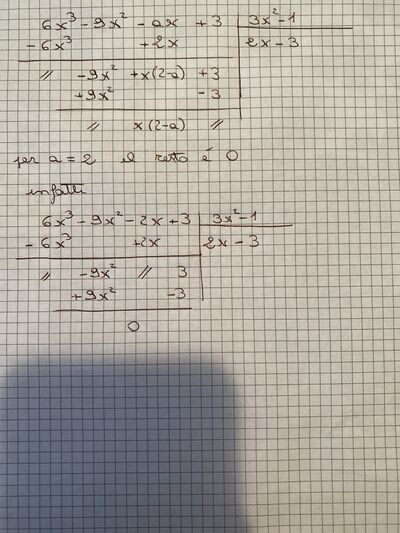 6x³ - 9x² - ax + 3 | 3x² - 1
- 6x³ + 2x | 2x - 3
// - 9x² + x(2-a) + 3
+ 9x² - 3
// x(2-a) //
per a = 2 il resto è 0
infatti
6x³ - 9x² - 2x + 3 | 3x² - 1
- 6x³ + 2x | 2x - 3
// - 9x² // 3
+ 9x² - 3
0